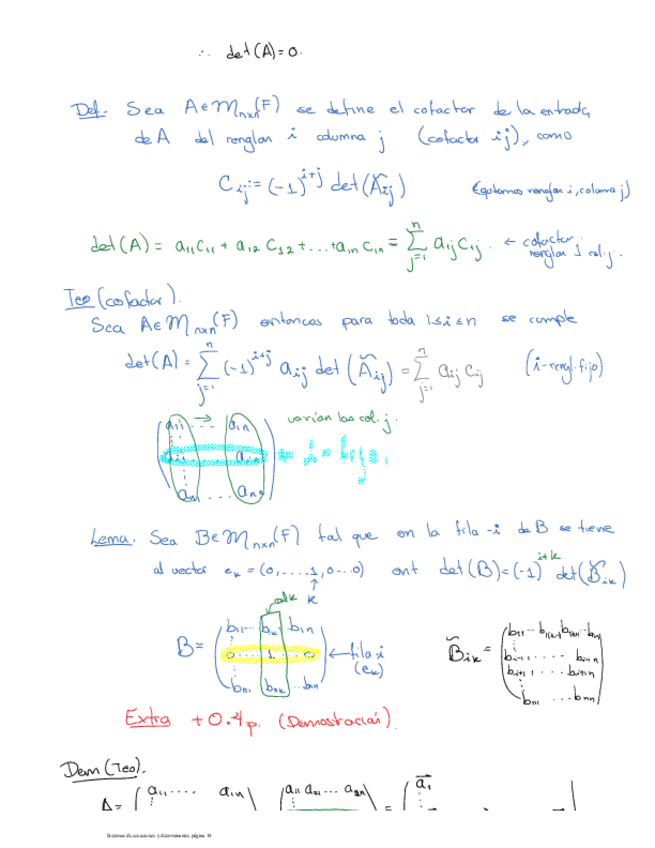 ∴ det(A)=0.
Def. Sea A∈M_{nxn}(F) se define el cofactor de la entrada
de A del renglon i columna j (cofactor ij), como
C_{ij} := (-1)^{i+j} det(Ã_{ij}) (quitamos renglon i, columna j)
det(A) = a_{11}C_{11} + a_{12}C_{12} + ... + a_{1n}C_{1n} = \sum_{j=1}^{n} a_{1j}C_{1j}. ← cofactor
renglon 1 col. j.
Teo (cofactor).
Sea A∈M_{nxn}(F) entonces para toda 1≤i≤n se cumple
det(A) = \sum_{j=1}^{n} (-1)^{i+j} a_{ij} det(Ã_{ij}) = \sum_{j=1}^{n} a_{ij}C_{ij} (i-rengl. fijo)
a_{11} → ... a_{1n} varían las col. j.
a_{i1} ... a_{in} ← i-fijo.
a_{n1} ... a_{nn}
Lema. Sea B∈M_{nxn}(F) tal que en la fila -i de B se tiene
al vector e_k = (0,....1,0...0) ent det(B)=(-1)^{i+k} det(B̃_{ik})
↑
col k k
b_{11}... b_{1k} b_{1n} b_{11}.. b_{1(k-1)} b_{1(k+1)}.. b_{1n}
B= 0 ... 1 ... 0 ← fila-i B̃_{ik} = b_{i-1 1} .... b_{i-1 n}
(e_k) b_{i+1 1} .... b_{i+1 n}
b_{n1} b_{nk} ..b_{nn} b_{n1} ... b_{nn}
Extra +0.4p. (Demostración).
Dem (Teo).
A= a_{11}.... a_{1n} a_{11} a_{21}... a_{2n} = \vec{a_1}
Sistemas de ecuaciones y determinantes página